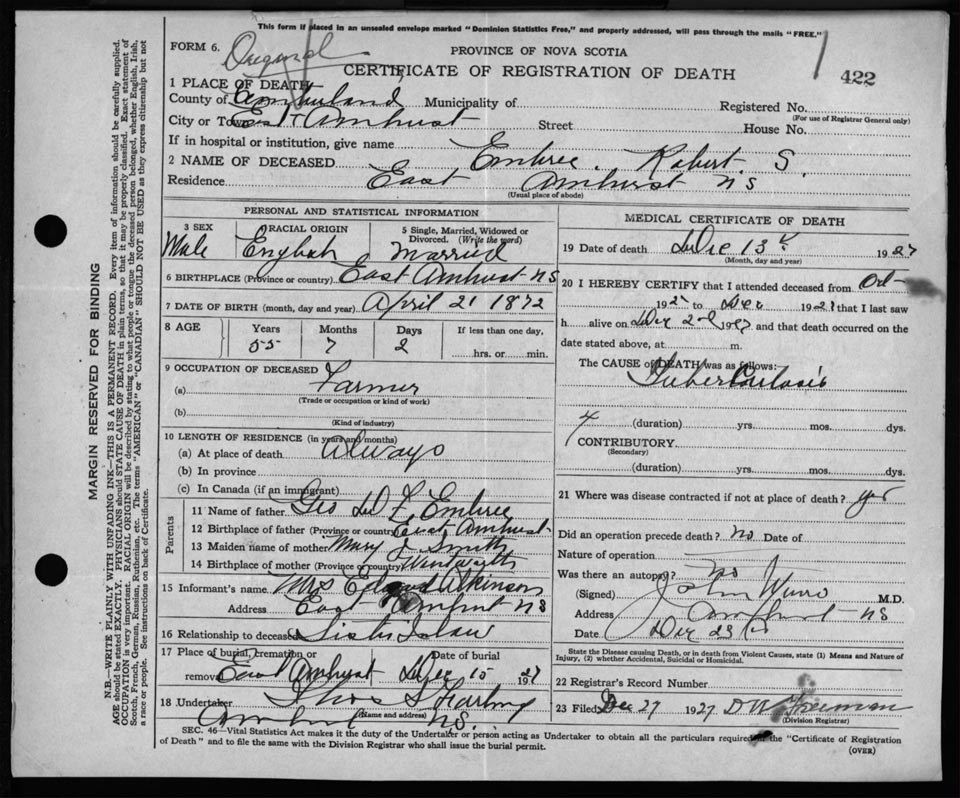 This form if placed in an unsealed envelope marked "Dominion Statistics Free," and properly addressed, will pass through the mails "FREE."
FORM 6. Original
PROVINCE OF NOVA SCOTIA
CERTIFICATE OF REGISTRATION OF DEATH
422
1 PLACE OF DEATH
County of Cumberland Municipality of Registered No.
(For use of Registrar General only)
City or Town East Amherst Street House No.
If in hospital or institution, give name
2 NAME OF DECEASED Embree. Robert. S.
Residence East Amherst NS
(Usual place of abode)
PERSONAL AND STATISTICAL INFORMATION
3 SEX RACIAL ORIGIN 5 Single, Married, Widowed or Divorced. (Write the word)
Male English Married
6 BIRTHPLACE (Province or country) East Amherst NS
7 DATE OF BIRTH (month, day and year) April 21 1872
8 AGE Years Months Days If less than one day,
55 7 2 hrs. or min.
9 OCCUPATION OF DECEASED
(a) Farmer
(Trade or occupation or kind of work)
(b)
(Kind of industry)
10 LENGTH OF RESIDENCE (in years and months)
(a) At place of death always
(b) In province
(c) In Canada (if an immigrant)
Parents
11 Name of father Geo F. Embree
12 Birthplace of father (Province or country) East Amherst
13 Maiden name of mother Mary Smith
14 Birthplace of mother (Province or country)
15 Informant's name Mrs Atkinson
Address East Amherst NS
16 Relationship to deceased Sister in law
17 Place of burial, cremation or removal Date of burial
East Amherst Dec 15 1927
18 Undertaker
(Name and address)
Amherst NS.
MEDICAL CERTIFICATE OF DEATH
19 Date of death Dec 13 1927
(Month, day and year)
20 I HEREBY CERTIFY that I attended deceased from Oct
192 to Dec 192 that I last saw
h alive on Dec 2nd 1927 and that death occurred on the
date stated above, at m.
The CAUSE of DEATH was as follows:
Tuberculosis
4 (duration) yrs. mos. dys.
CONTRIBUTORY
(Secondary)
(duration) yrs. mos. dys.
21 Where was disease contracted if not at place of death? yes
Did an operation precede death? no Date of
Nature of operation
Was there an autopsy? no
(Signed) John Munro M.D.
Address Amherst NS
Date Dec 23
State the Disease causing Death, or in death from Violent Causes, state (1) Means and Nature of Injury, (2) whether Accidental, Suicidal or Homicidal.
22 Registrar's Record Number
23 Filed Dec 27 1927 Freeman
(Division Registrar)
SEC. 46—Vital Statistics Act makes it the duty of the Undertaker or person acting as Undertaker to obtain all the particulars required in the "Certificate of Registration
of Death" and to file the same with the Division Registrar who shall issue the burial permit.
(OVER)
MARGIN RESERVED FOR BINDING
N.B.—WRITE PLAINLY WITH UNFADING INK—THIS IS A PERMANENT RECORD. Every item of information should be carefully supplied.
AGE should be stated EXACTLY. PHYSICIANS should STATE CAUSE OF DEATH in plain terms, so that it may be properly classified. Exact statement of
OCCUPATION is very important. RACIAL ORIGIN will be described by stating to what people or tongue the deceased person belonged, whether English, Irish,
Scotch, French, German, Russian, Ruthenian, etc. The terms "AMERICAN" or "CANADIAN" SHOULD NOT BE USED as they express citizenship but not
a race or people. See instructions on back of Certificate.